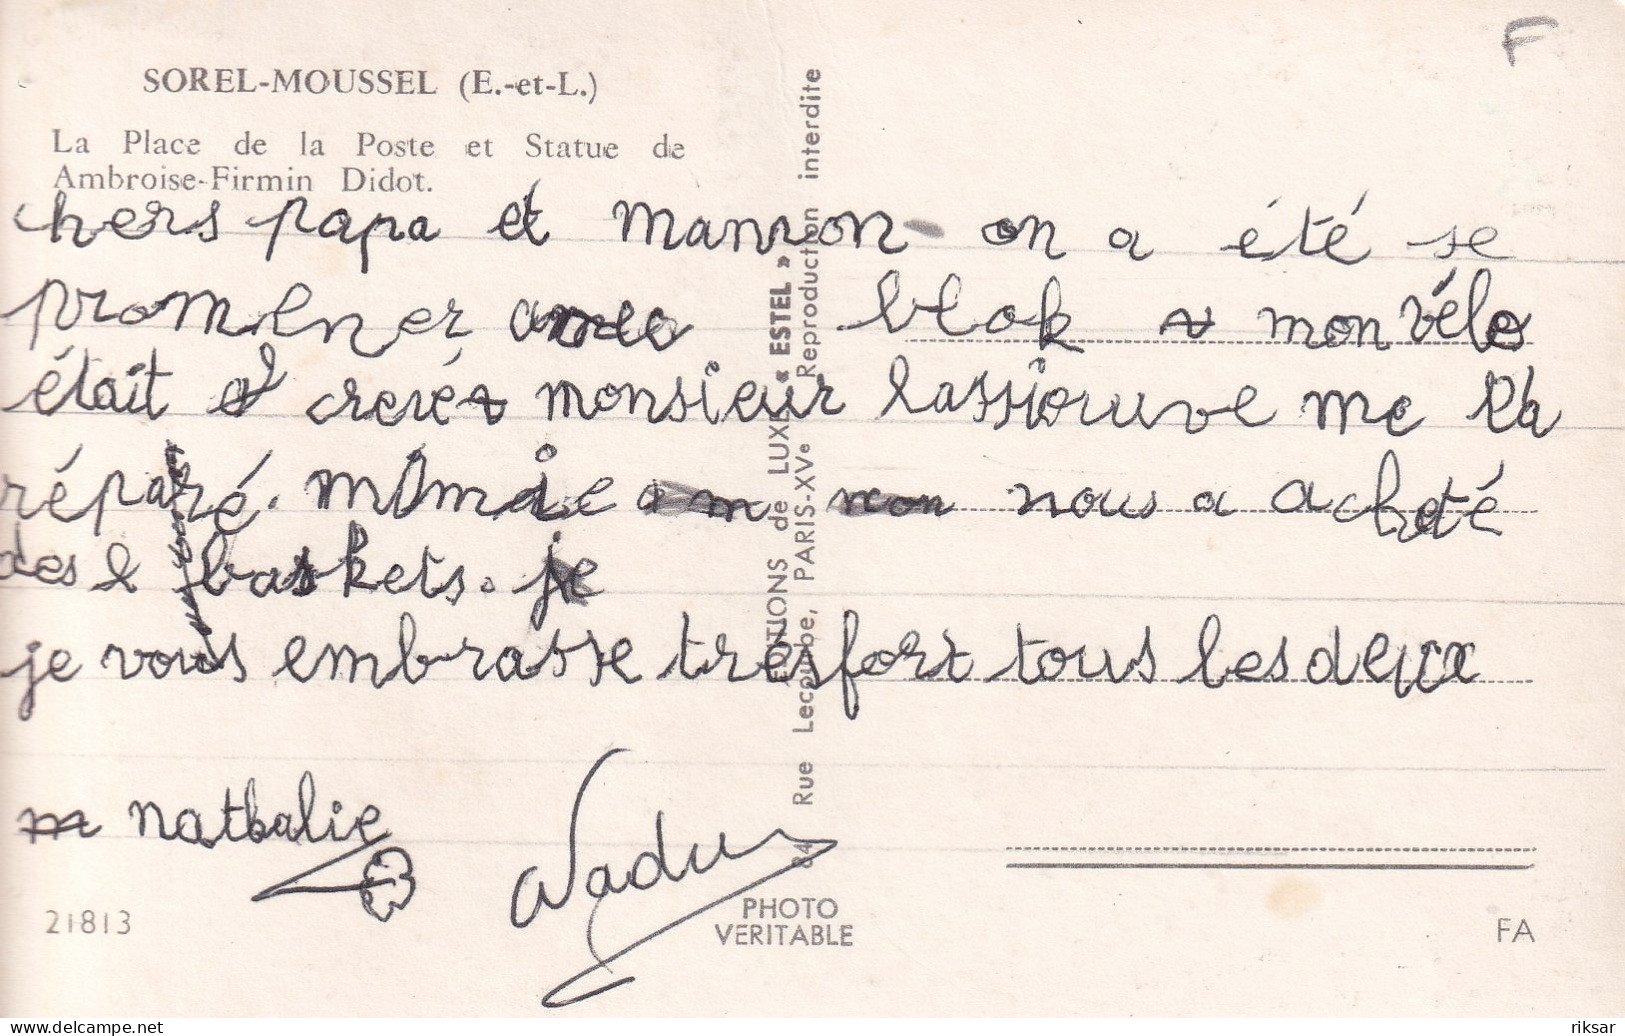 F
SOREL-MOUSSEL (E.-et-L.)
La Place de la Poste et Statue de
Ambroise-Firmin Didot.
chers papa et maman on a été se
promener avec blak mon vélo
était crevé monsieur me l'a
réparé. mamie nous a acheté
des baskets. je
je vous embrasse tres fort tous les deux
nathalie
EDITIONS de LUXE « ESTEL »
84 Rue Lecourbe, PARIS-XVe Reproduction interdite
21813
PHOTO
VERITABLE
FA
delcampe.net
riksar